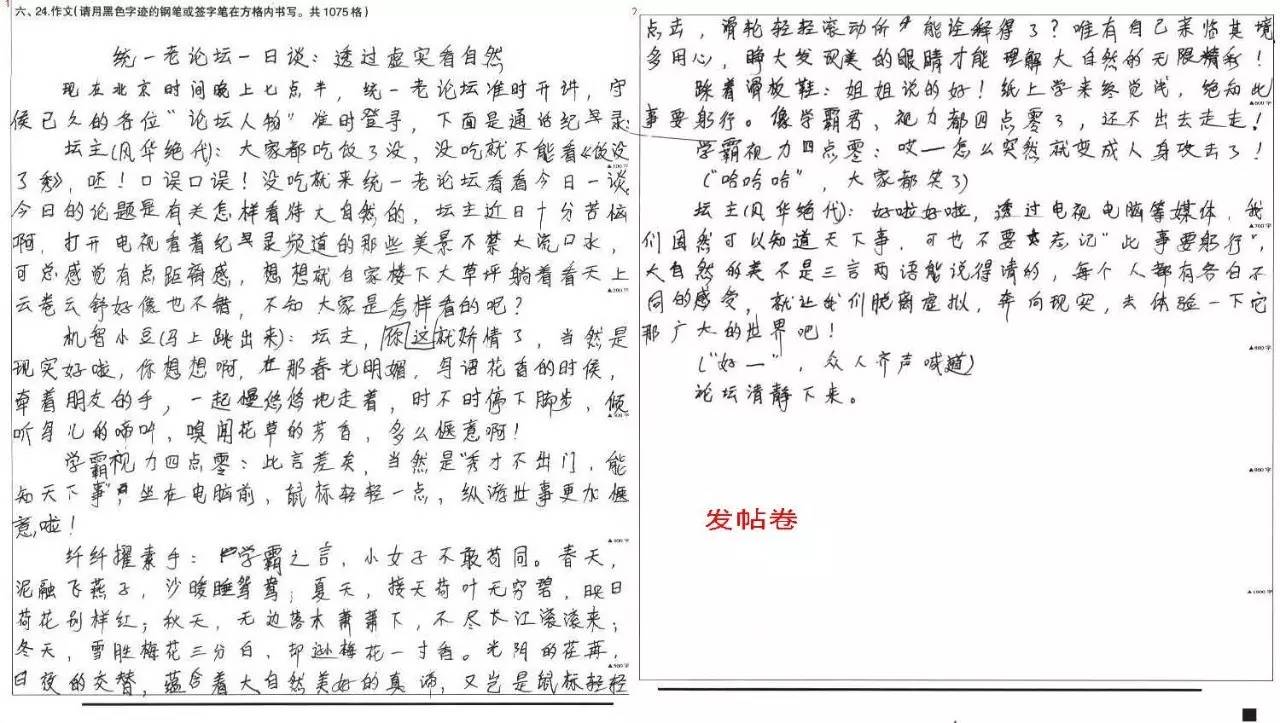 1
六、24.作文(请用黑色字迹的钢笔或签字笔在方格内书写。共1075格)
统一老论坛一日谈：透过虚实看自然
现在北京时间晚上七点半，统一老论坛准时开讲，守
候已久的各位“论坛人物”准时登寻，下面是通话纪录
坛主(风华绝代)：大家都吃饭了没，没吃就不能看《饭没
了秀》，呸！口误口误！没吃就来统一老论坛看看今日一谈
今日的论题是有关怎样看待大自然的，坛主近日十分苦恼
啊，打开电视看着纪录频道的那些美景不禁大流口水，
可总感觉有点距离感，想想就自家楼下大草坪躺着看天上
云卷云舒好像也不错，不知大家是怎样看的呢？
机智小豆(马上跳出来)：坛主，你这就矫情了，当然是
现实好啦，你想想啊，在那春光明媚，鸟语花香的时候，
牵着朋友的手，一起慢悠悠地走着，时不时停下脚步，倾
听鸟儿的啼叫，嗅闻花草的芳香，多么惬意啊！
学霸视力四点零：此言差矣，当然是“秀才不出门，能
知天下事”，坐在电脑前，鼠标轻轻一点，纵游世事更加惬
意啦！
纤纤擢素手：学霸之言，小女子不敢苟同。春天，
泥融飞燕子，沙暖睡鸳鸯；夏天，接天荷叶无穷碧，映日
荷花别样红；秋天，无边落木萧萧下，不尽长江滚滚来；
冬天，雪胜梅花三分白，却逊梅花一寸香。光阴的荏苒，
日夜的交替，蕴含着大自然美好的真谛，又岂是鼠标轻轻
2
点击，滑轮轻轻滚动所能诠释得了？唯有自己来临其境
多用心，睁大发现美的眼睛才能理解大自然的无限精彩！
踩着滑板鞋：姐姐说的好！纸上学来终觉浅，绝知此
事要躬行。像学霸君，视力都四点零了，还不出去走走！
学霸视力四点零：哎—怎么突然就变成人身攻击了！
(“哈哈哈”，大家都笑了)
坛主(风华绝代)：好啦好啦，透过电视电脑等媒体，我
们固然可以知道天下事，可也不要忘记“此事要躬行”，
大自然的美不是三言两语能说得清的，每个人都有各自不
同的感受，就让我们脱离虚拟，奔向现实，去体验一下它
那广大的世界吧！
(“好一”，众人齐声喊道)
论坛清静下来。
发帖卷